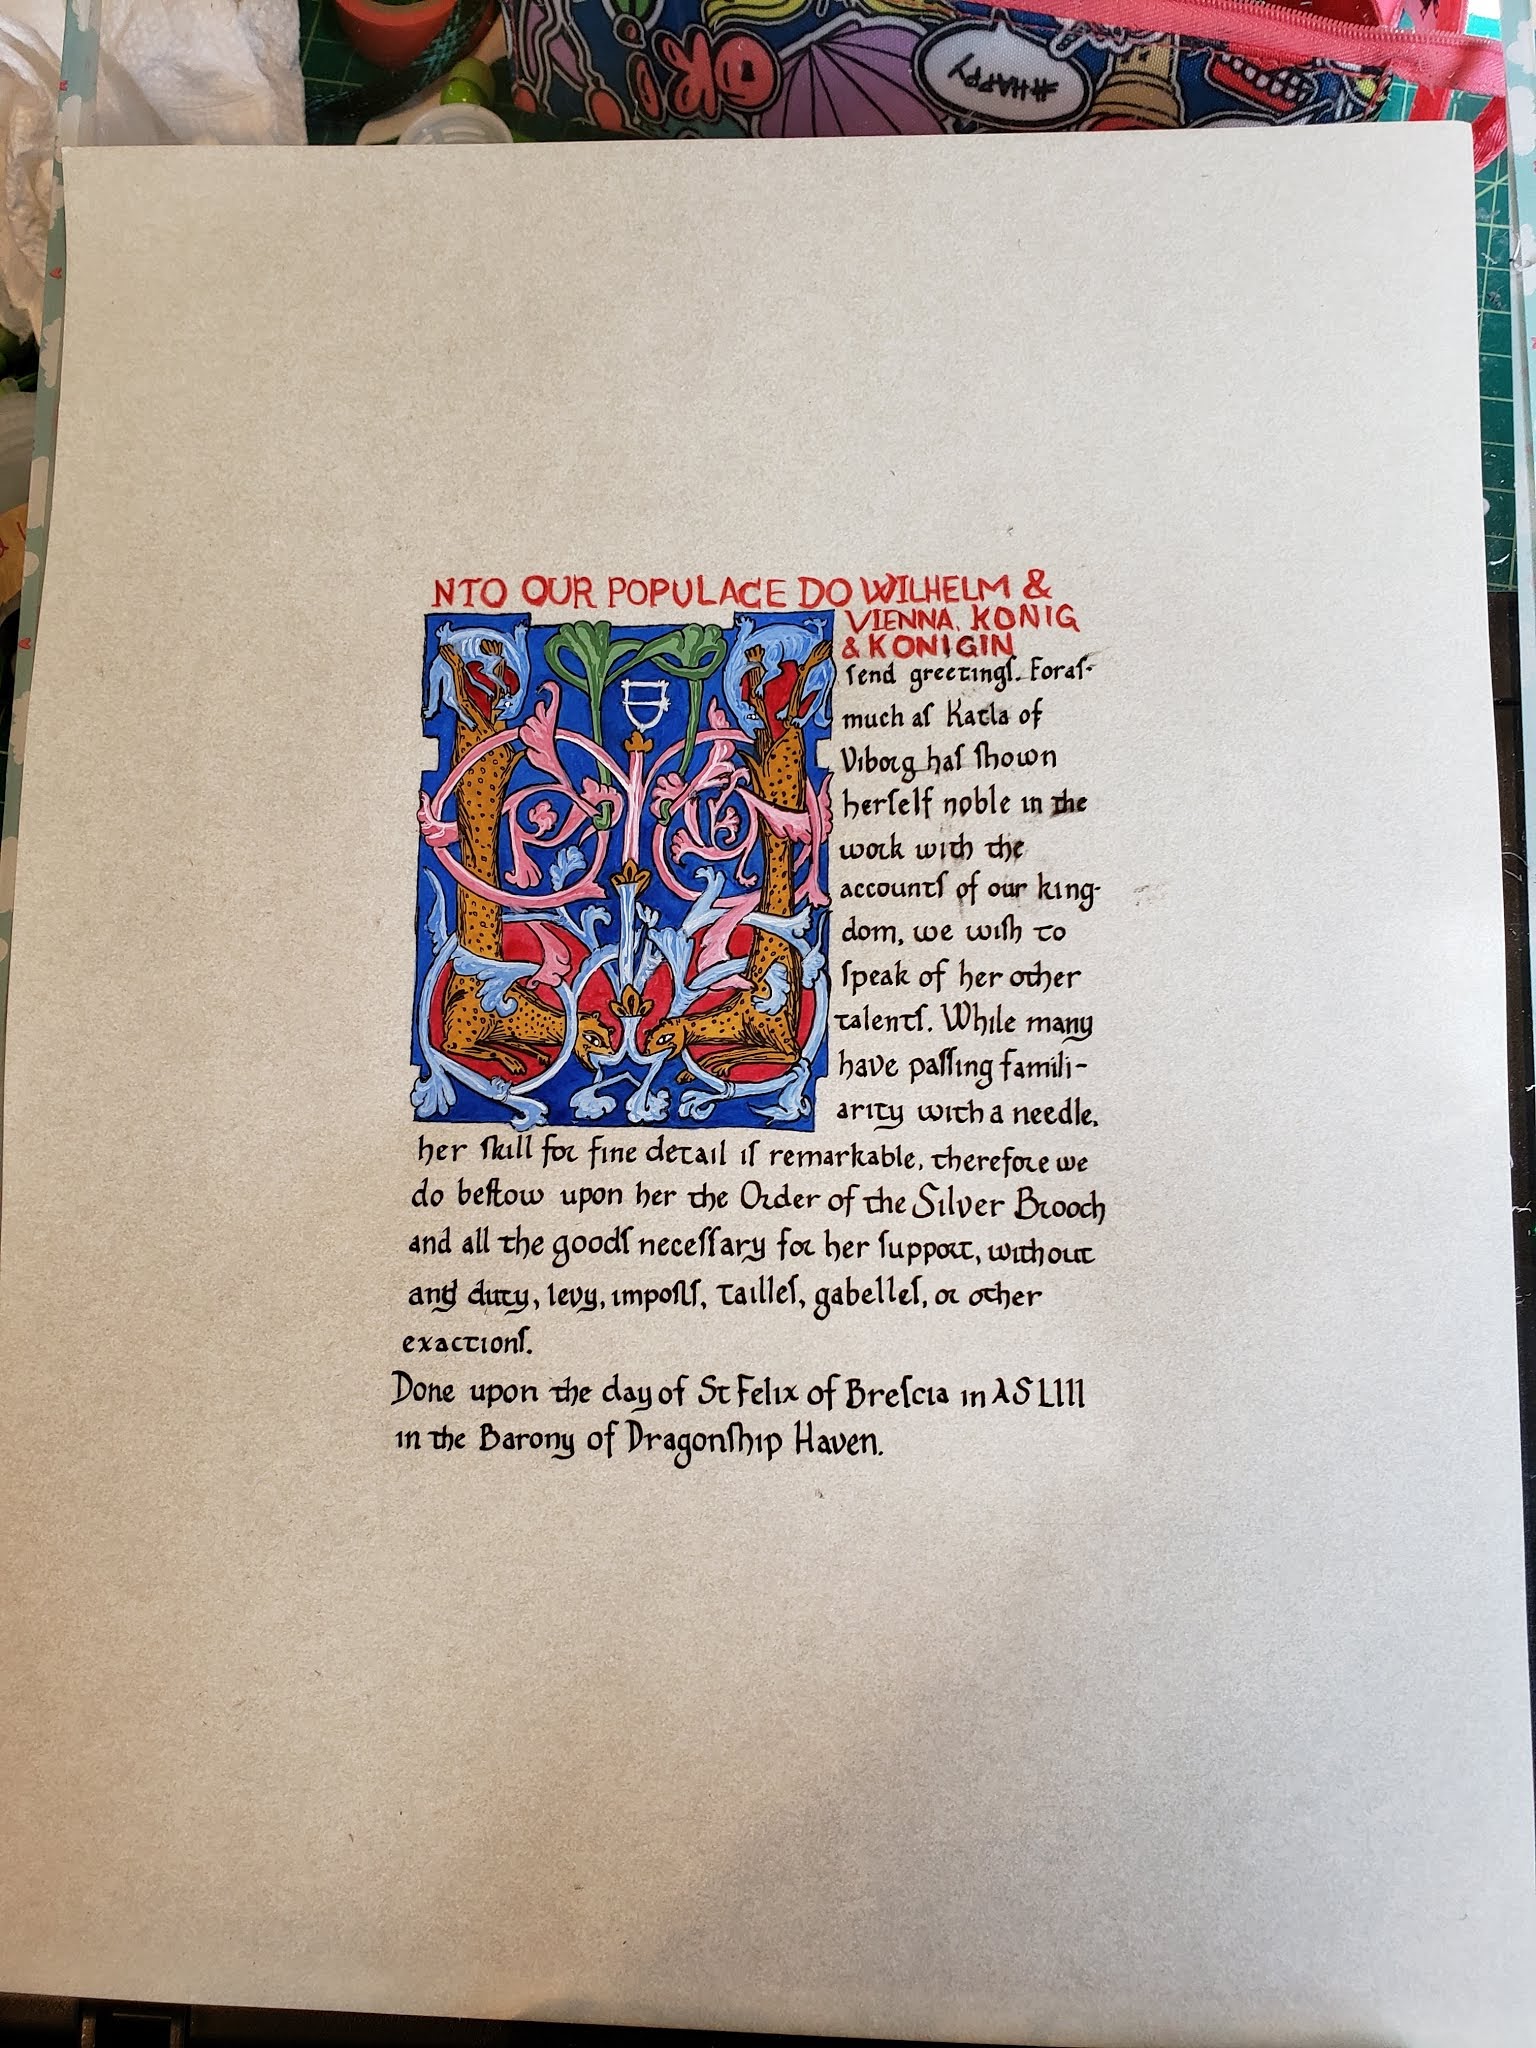 #HAPPY
NTO OUR POPULACE DO WILHELM &
VIENNA. KONIG
& KONIGIN
send greetings. Foras-
much as Katla of
Viborg has shown
herself noble in the
work with the
accounts of our king-
dom, we wish to
speak of her other
talents. While many
have passing famili-
arity with a needle,
her skill for fine detail is remarkable, therefore we
do bestow upon her the Order of the Silver Brooch
and all the goods necessary for her support, without
any duty, levy, imposts, tailles, gabelles, or other
exactions.
Done upon the day of St Felix of Brescia in AS LIII
in the Barony of Dragonship Haven.